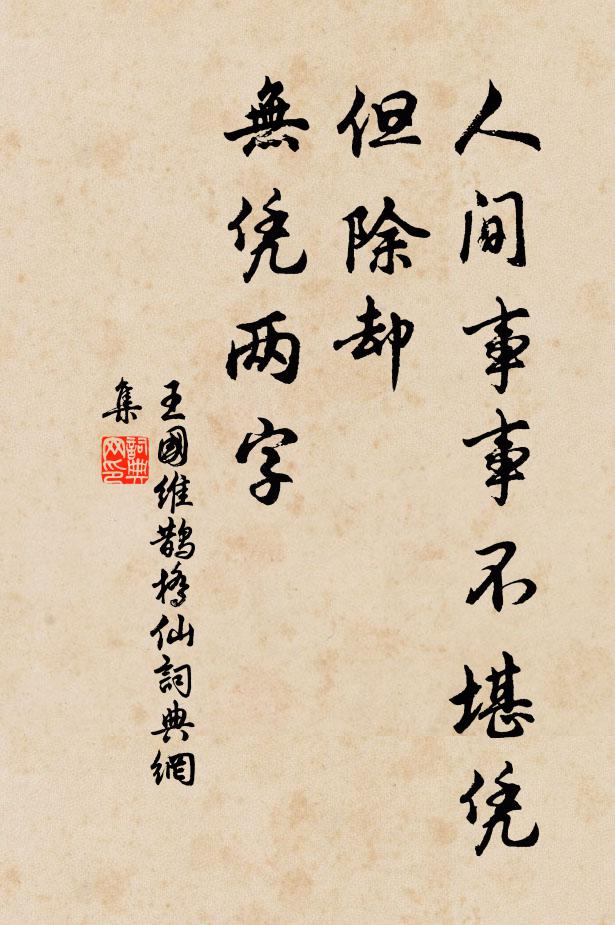 人间事事不堪凭
但除却
無凭两字
王國維鵲橋仙詞典網
集
詞典
网印